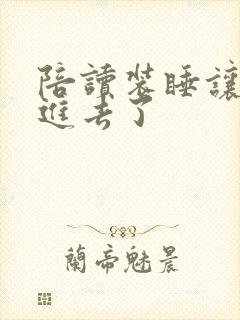 陪讀裝睡讓
進去了
蘭帝魅晨